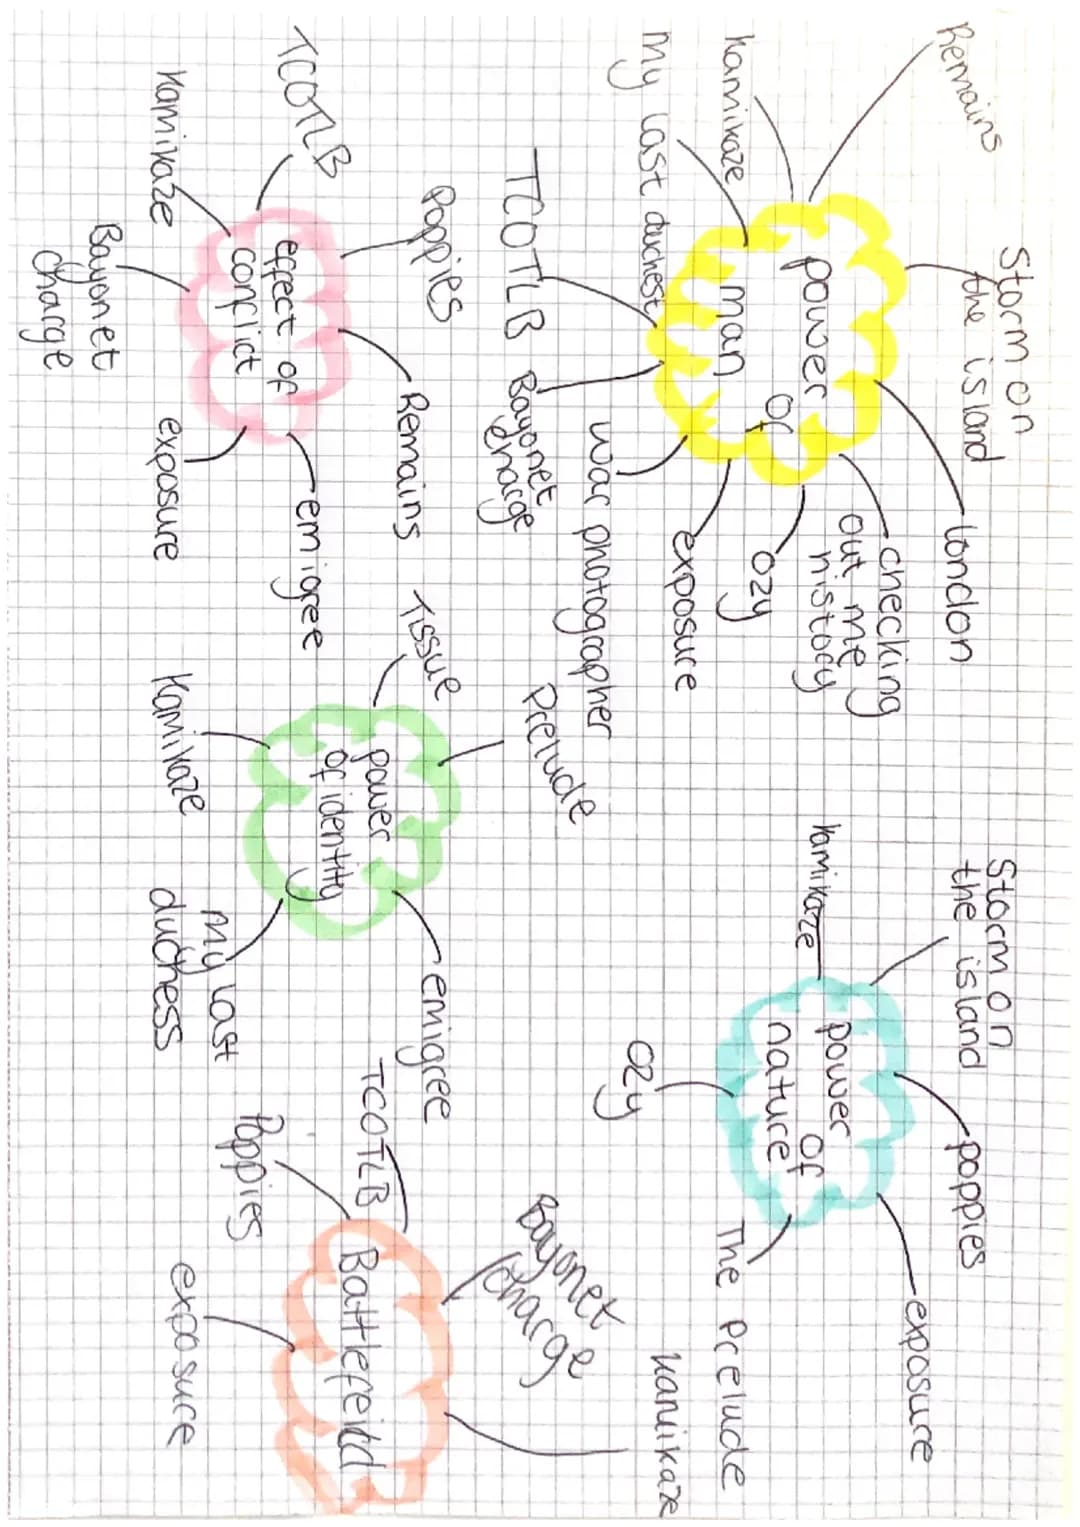 Remains
Kamikaze
My last duchest
TCOTLB
Bayonet
charge
war photographer
exposure
Ozy
checking
out me
history
London
Storm on
the island
power
of
man
Storm on
the island
Kamikaze
poppies
exposure
The Prelude
Ozy
power
of
nature
TCOTLB
Kamikaze
Bayonet
charge
exposure
emigree
Remains
Poppies
effect of
conflict
Tissue
Prelude
Kamikaze
My last
duchess
emigree
power
of identity
TCOTLB
Poppies
exposure
Bayonet
charge
Kamikaze
Battlefeild